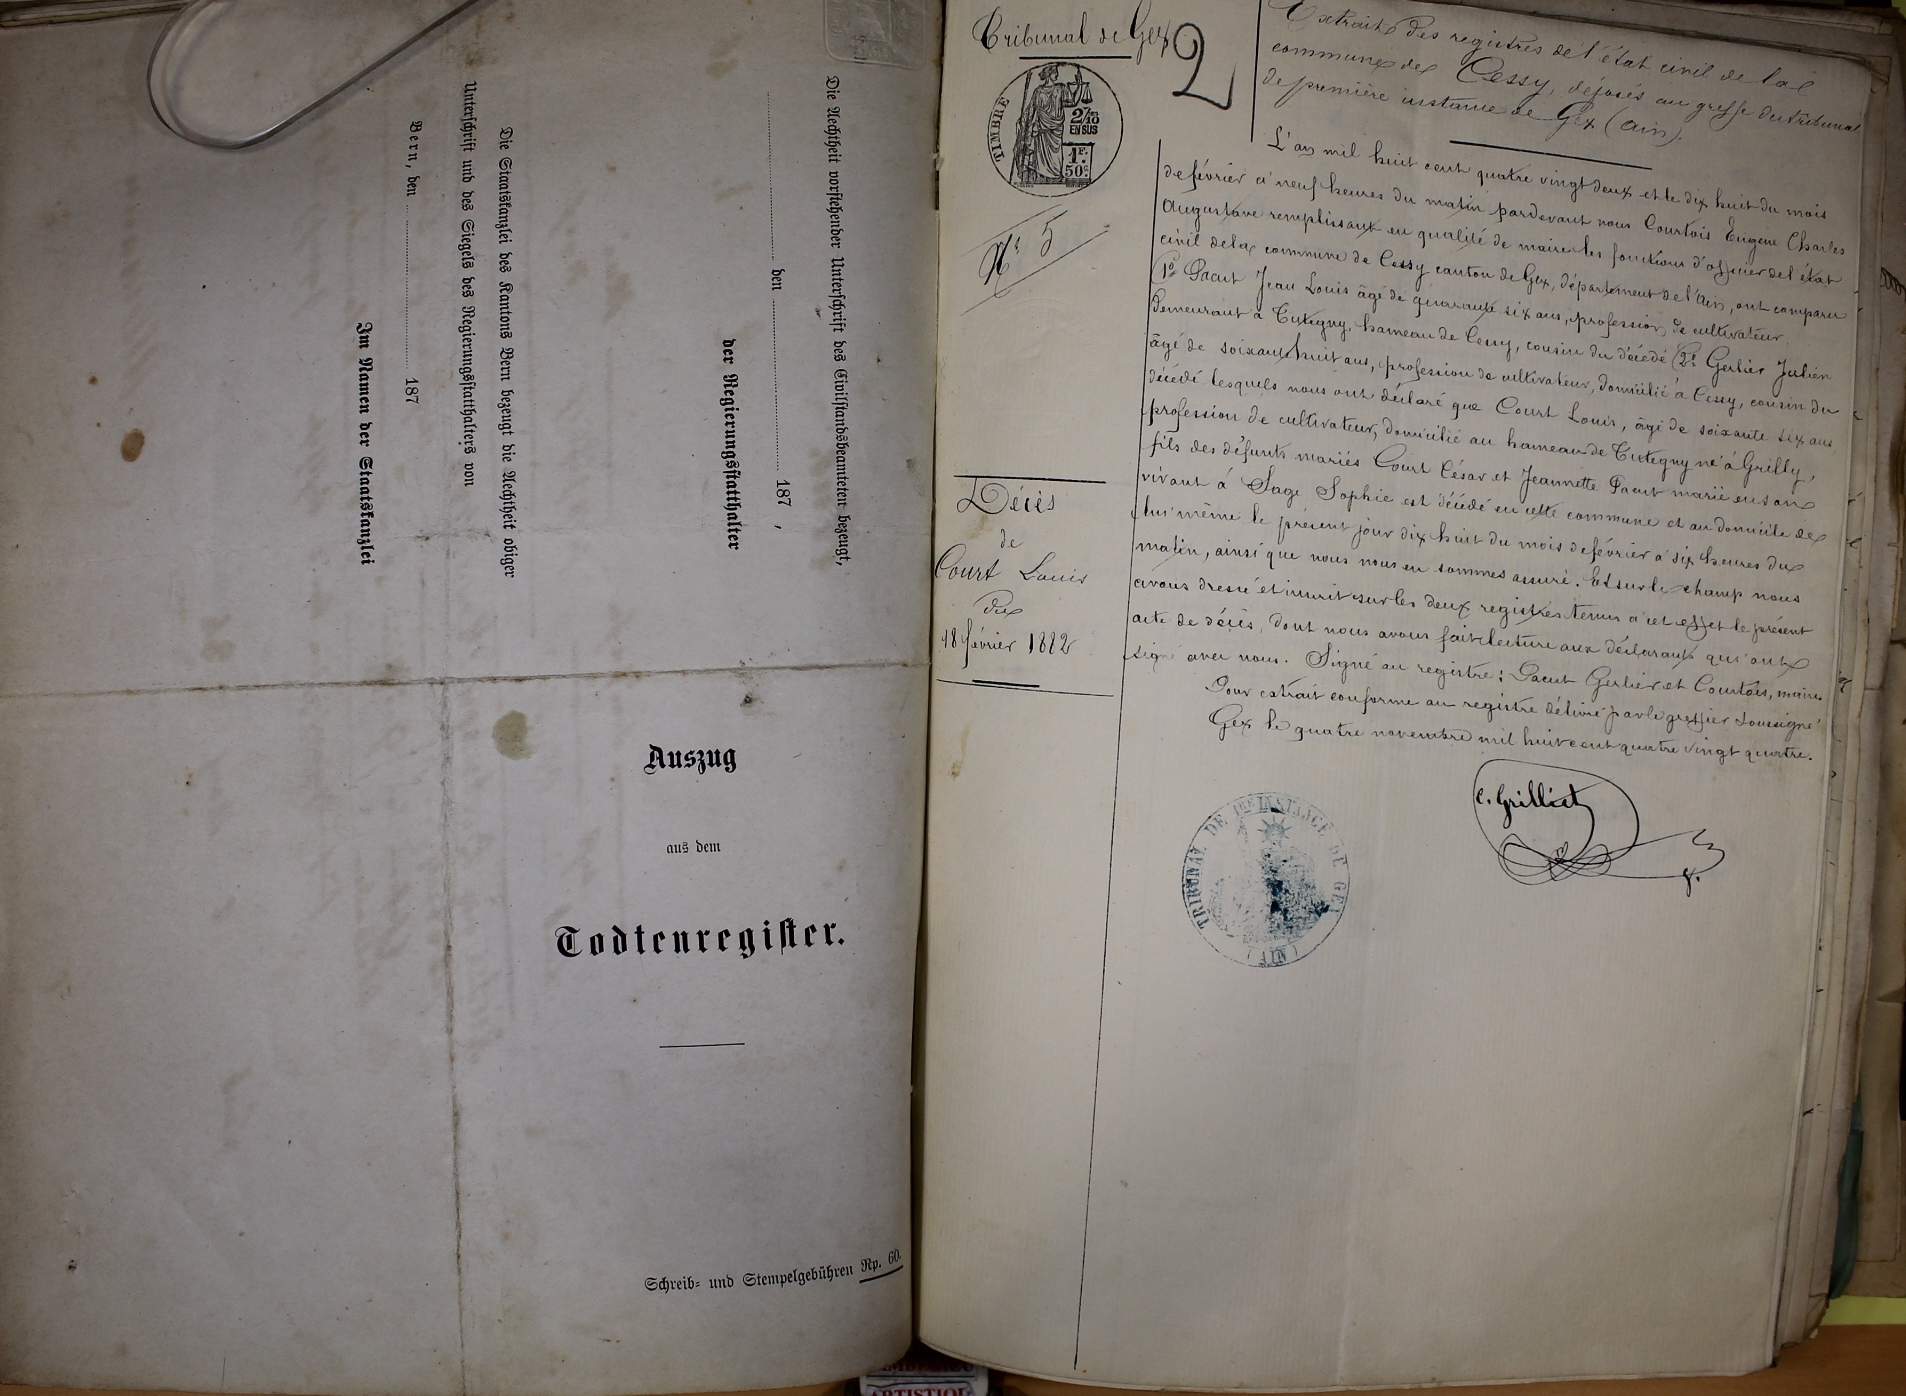 Die Aechtheit vorstehender Unterschrift des Civilstandsbeamteten bezeugt,
den 187 ,
der Regierungsstatthalter
Die Staatskanzlei des Kantons Bern bezeugt die Aechtheit obiger
Unterschrift und des Siegels des Regierungsstatthalters von
Bern, den 187
Im Namen der Staatskanzlei
Auszug
aus dem
Todtenregister.
Schreib- und Stempelgebühren Rp. 60.
Tribunal de Gex
2
TIMBRE
2/10 EN SUS
1F. 50c
No 5
Décès
de
Court Louis
du
18 février 1882
Extrait des registres de l'état civil de la
commune de Cessy, déposés au greffe du tribunal
de première instance de Gex (Ain).
L'an mil huit cent quatre vingt deux et le dix huit du mois
de février à neuf heures du matin pardevant nous Courtois Eugène Charles
Augustave remplissant en qualité de maire les fonctions d'officier de l'état
civil de la commune de Cessy canton de Gex, département de l'Ain, ont comparu
1o Pacut Jean Louis âgé de quarante six ans, profession de cultivateur,
demeurant à Tutegny, hameau de Cessy, cousin du décédé 2o Gerlier Julien
âgé de soixante huit ans, profession de cultivateur, domicilié à Cessy, cousin du
décédé lesquels nous ont déclaré que Court Louis, âgé de soixante six ans
profession de cultivateur, domicilié au hameau de Tutegny né à Grilly,
fils des défunts mariés Court César et Jeannette Pacut marié en son
vivant à Sage Sophie est décédé en cette commune et au domicile de
lui même le présent jour dix huit du mois de février à six heures du
matin, ainsi que nous nous en sommes assuré. Et sur le champ nous
avons dressé et inscrit sur les deux registres tenus à cet effet le présent
acte de décès, dont nous avons fait lecture aux déclarants qui ont
signé avec nous. Signé au registre: Pacut Gerlier et Courtois, maire.
Pour extrait conforme au registre délivré par le greffier soussigné
Gex le quatre novembre mil huit cent quatre vingt quatre.
C. Grilliet
TRIBUNAL DE 1RE INSTANCE DE GEX
(AIN)